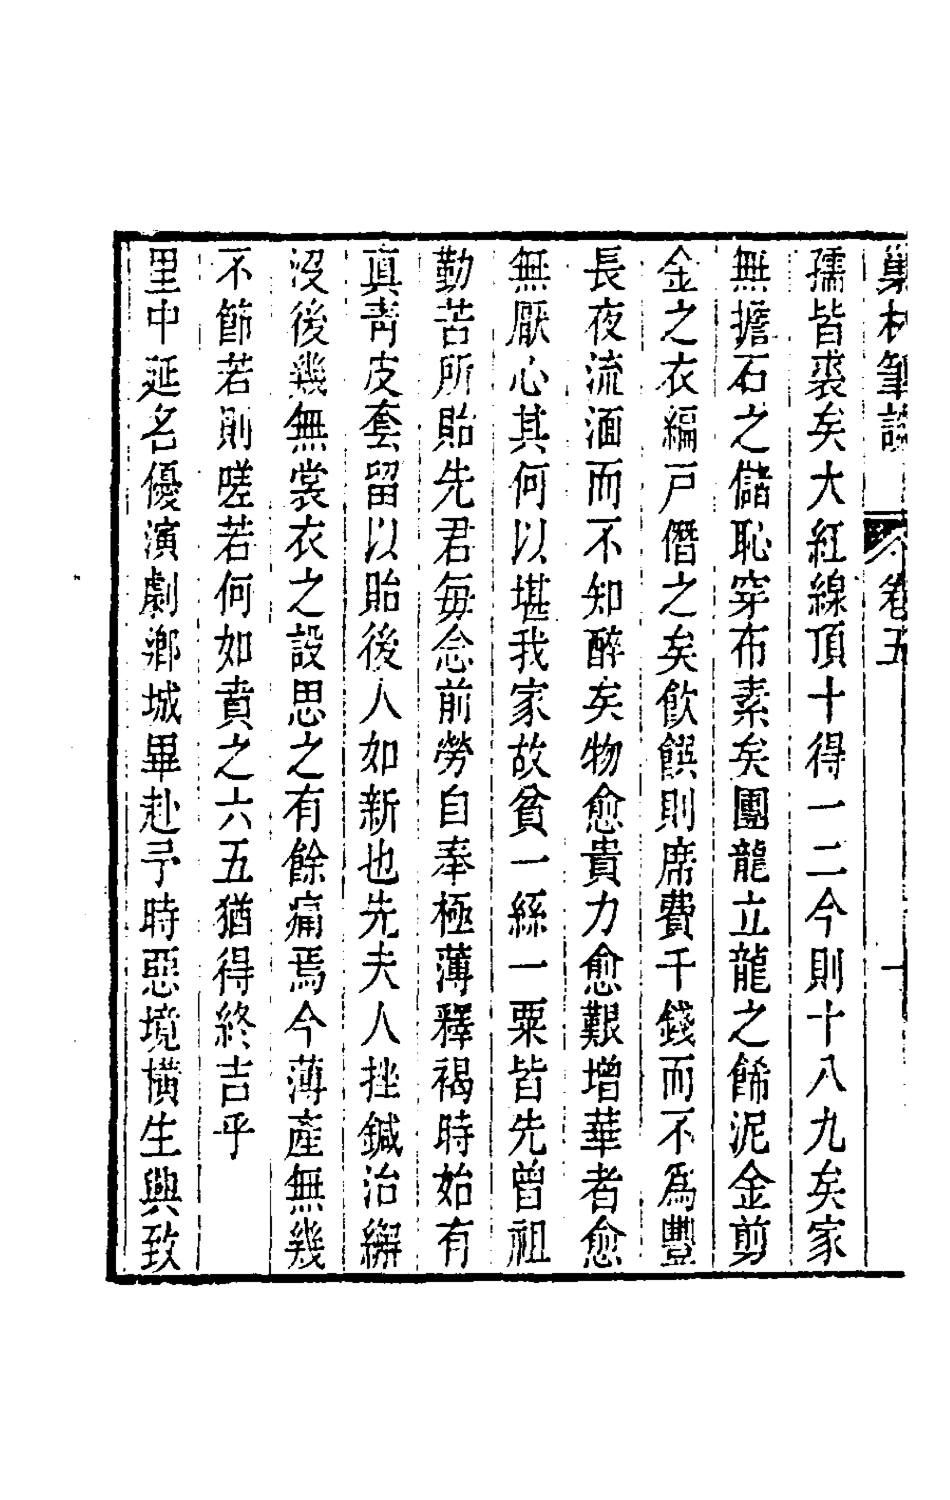 巢林筆談 卷五 十
孺皆裘矣大紅線頂十得一二今則十八九矣家
無擔石之儲恥穿布素矣團龍立龍之餙泥金剪
金之衣編戸僭之矣飲饌則席費千錢而不爲豐
長夜流湎而不知醉矣物愈貴力愈艱增華者愈
無厭心其何以堪我家故貧一絲一粟皆先曾祖
勤苦所貽先君每念前勞自奉極薄釋褐時始有
真青皮套留以貽後人如新也先夫人挫鍼治繲
沒後幾無裳衣之設思之有餘痛焉今薄產無幾
不節若則嗟若何如賁之六五猶得終吉乎
里中延名優演劇鄉城畢赴予時惡境橫生興致